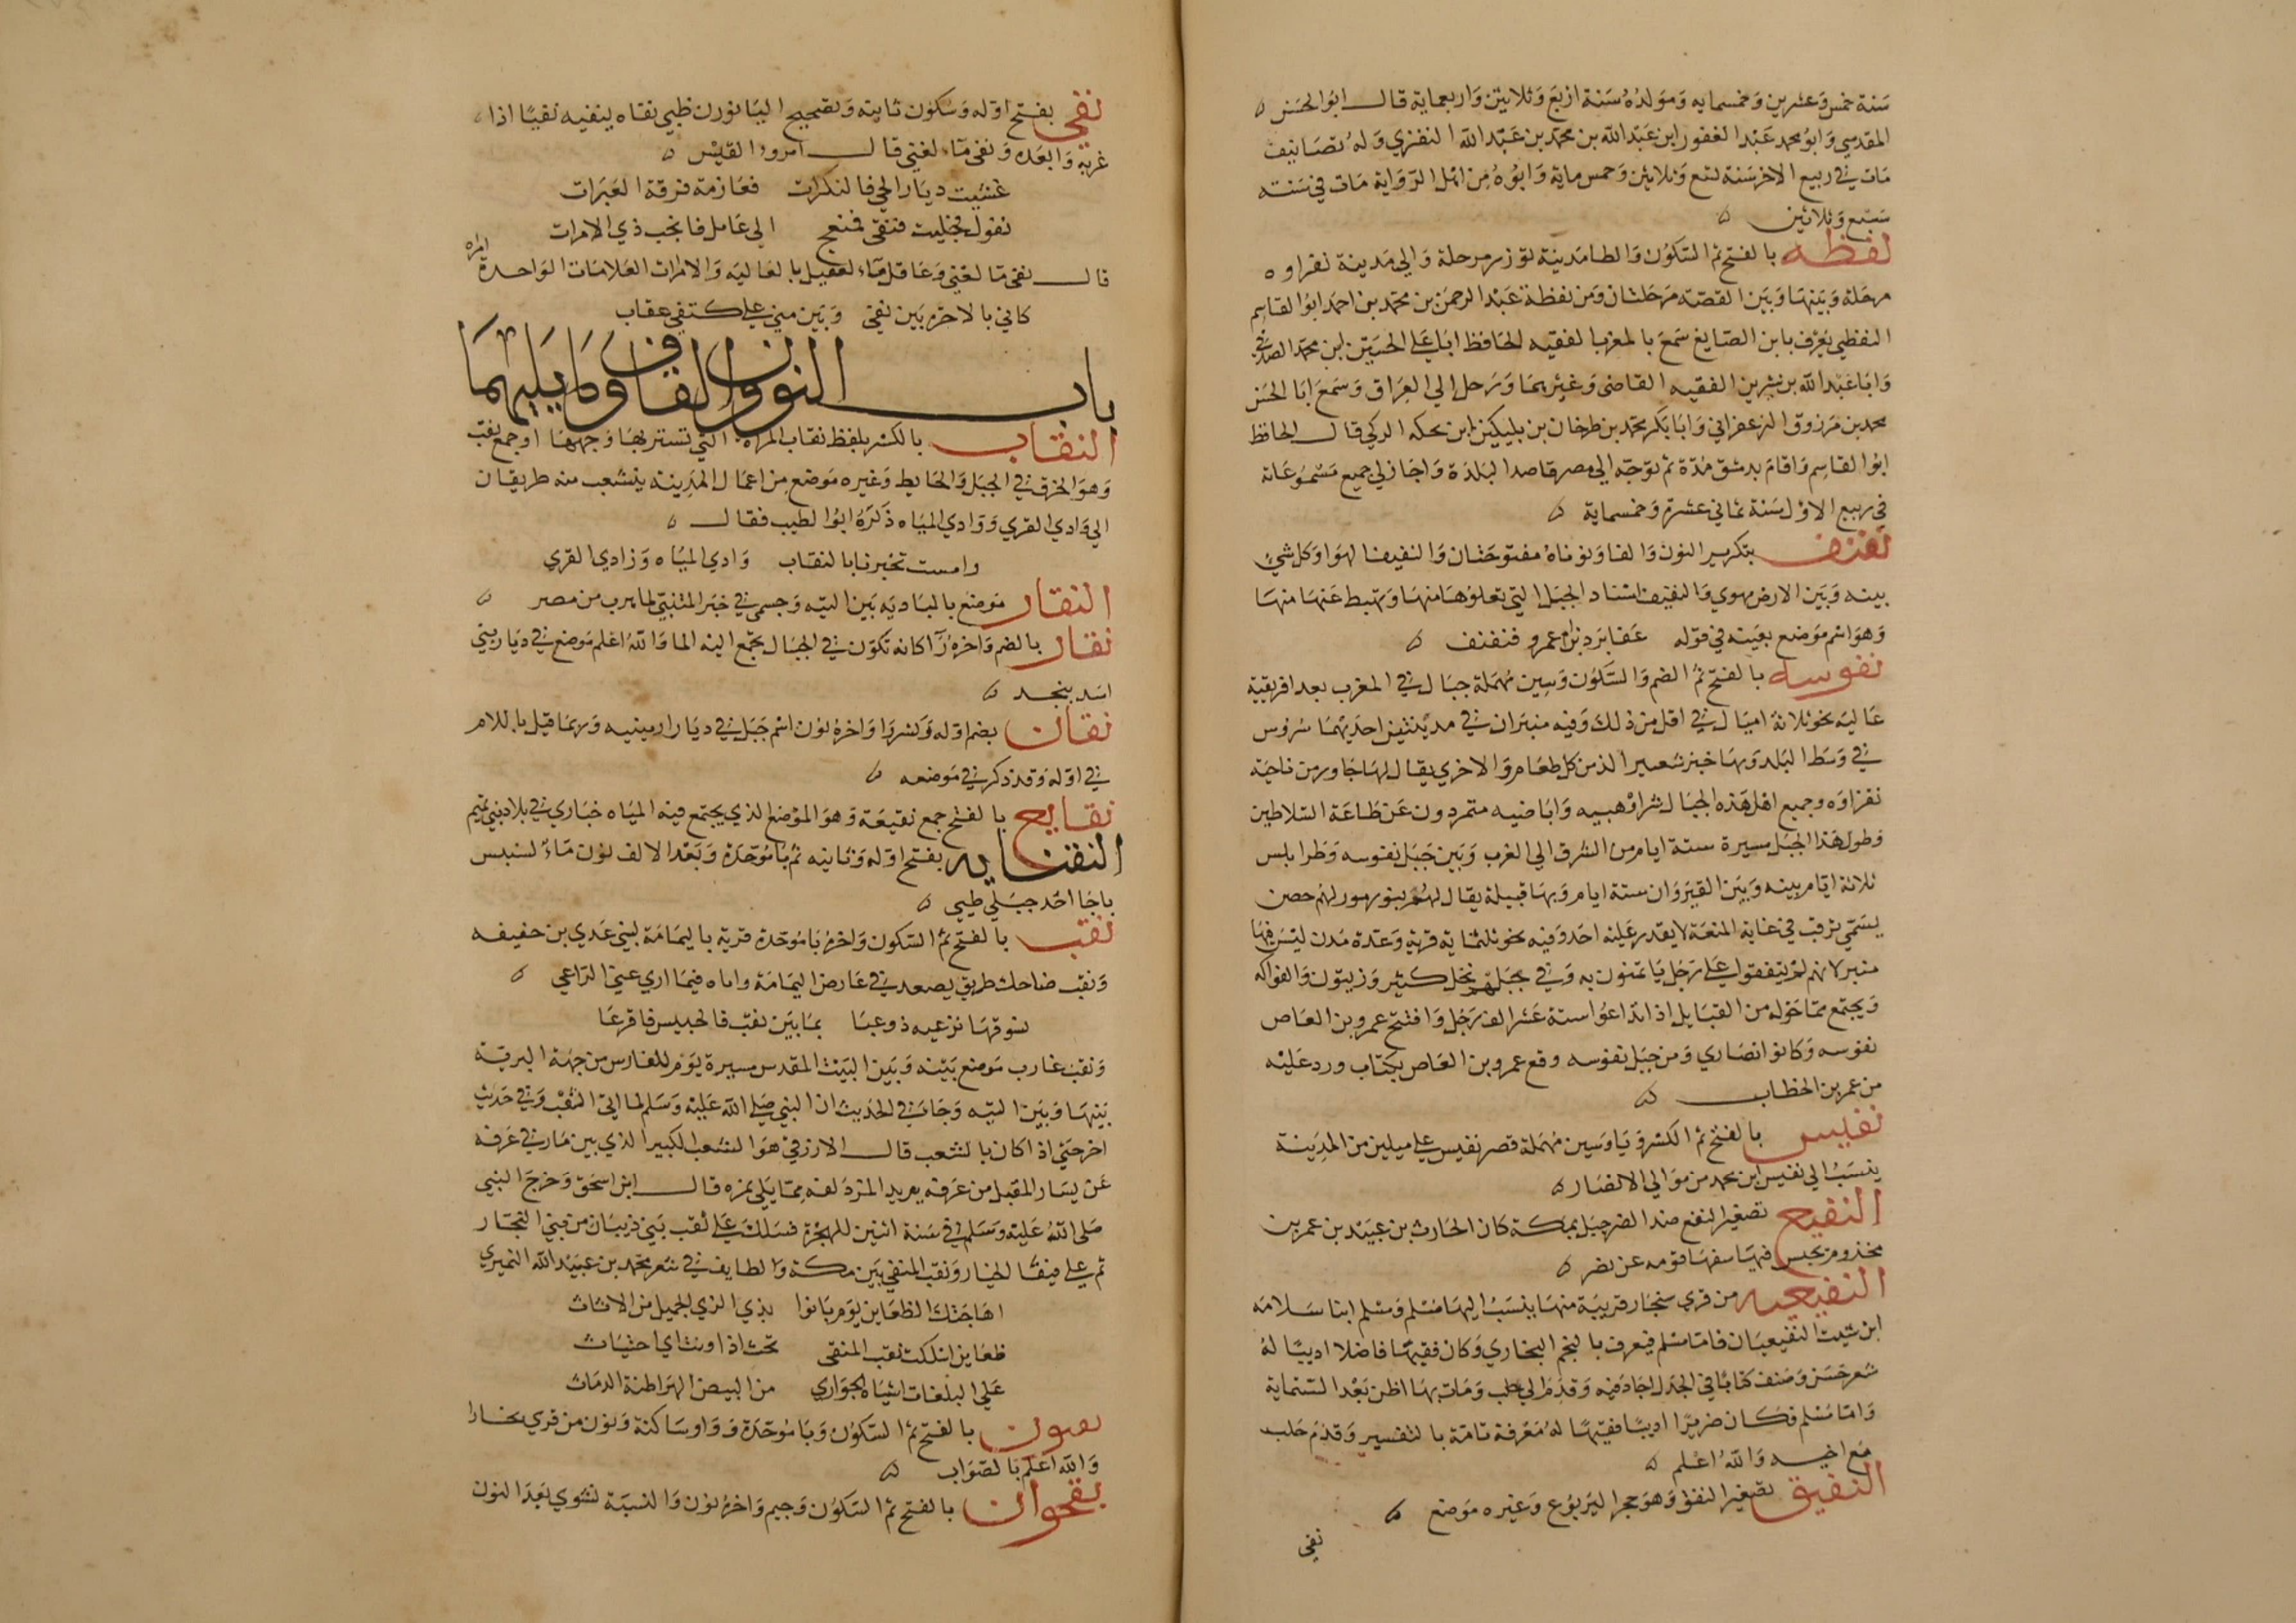 سنة خمس وعشرين وخمسمايه ومولده سنة اربع وثلاثين واربعماية قال ابو الحسن
المقدسي وابو محمد عبد الغفور ابن عبد الله بن محمد بن عبد الله النفزي وله تصانيف
مات في ربيع الاخر سنة تسع وثلاثين وخمس ماية وابوه من اهل الرواية مات في سنته
سبع وثلاثين
نفطه بالفتح ثم السكون والطا مدينة توزر مرحلة والي مدينة نفزاوه
مرحلة وبينها وبين قفصة مرحلتان ومن نفطة عبد الرحمن بن محمد بن احمد ابوا القاسم
النفطي يعرف بابن الصايغ سمع بالمغرب الفقيه الحافظ ابا علي الحسين ابن محمد الصدفي
وابا عبد الله بن بشر بن الفقيه القاضي وغيرهما ورحل الي العراق وسمع ابا الحسن
محمد بن مرزوق الزعفراني وابا بكر محمد بن طرخان بن بلتكين بن بحكم التركي قال الحافظ
ابوا القاسم واقام بدمشق مدة ثم توجه الي مصر قاصدا لبلده واجاز لي جميع مسموعاته
في ربيع الاول سنة ثماني عشرة وخمسماية
نفنف بتكرير النون والفا ونوناه مفتوحتان والنفيف الهوا وكل شي
بينه وبين الارض مهوي والنفنف اسناد الجبل التي تعلوها منها وتهبط عنها منها
وهو اسم موضع بعينه في قوله عفا برد من ام عمرو فنفنف
نفوسه بالفتح ثم الضم والسكون وسين مهملة جبال في المغرب بعد افريقية
عاليه نحو ثلاثة اميال في اقل من ذلك وفيه منبران في مدينتين احديهما شروس
في وسط البلد وبها خبز شعير الذ من كل طعام والاخري يقال لها جاور من ناحية
نفزاوه وجميع اهل هذه الجبال شراة وهبيه واباضيه متمردون عن طاعة السلاطين
وطول هذا الجبل مسيرة ستة ايام من الشرق الي الغرب وبين جبل نفوسه وطرابلس
ثلاثة ايام وبينه وبين القيروان ستة ايام وبها قبيلة يقال لهم بنو زمور لهم حصن
يسمي تيرقت في غاية المنعة لا يقدر عليه احد وفيه نحو ثلثماية قرية وعدة مدن ليس فيها
منبر لانهم لم يتفقوا علي رجل ياتمون به وفي جبلهم نخل كثير وزيتون والفواكه
ويجتمع مما حوله من القبايل اذا تداعوا ستة عشر الف رجل وافتتح عمرو بن العاص
نفوسه وكانوا نصاري ومن جبل نفوسه رجع عمرو بن العاص بكتاب ورد عليه
من عمر بن الخطاب
نفيس بالفتح ثم الكسر ويا وسين مهملة قصر نفيس علي ميلين من المدينة
ينسب الي نفيس بن محمد من موالي الانصار
النفيع تصغير النفع ضد الضر جبل بمكة كان الحارث بن عبيد بن عمر بن
مخزوم يحبس فيها سفها قومه عن نصر
النفيعيه من قري سنجار قريبة منها ينسب اليها مسلم ومسلم ابنا سلامه
ابن شبيب النفيعيان فاما مسلم فيعرف بالنجم البخاري وكان فقيها فاضلا اديبا له
شعر حسن وصنف كتابا في الجدل اجاد فيه وقدم الي حلب ومات بها اظن بعد الستماية
واما مسلم فكان ضريرا اديبا فقيها له معرفة تامة بالتفسير وقدم حلب
مع اخيه والله اعلم
النفيق تصغير النفق وهو جحر اليربوع وغيره موضع
نفي
نفي بفتح اوله وسكون ثانيه وتصحيح اليا نوزن ظبي نفاه ينفيه نفيا اذا
غربه وابعده ونفي ماء لغني قال امرو القيس
غشيت ديار الحي فالنكرات فعازمة فرقة العبرات
نغول فحليت فنفي فمنعج الي عاقل فالجب ذي الامرات
قال نفي ما لغني وعاقل ماء لعقيل بالعاليه والامرات العلامات الواحدة امره
كاني بالاحزه بين نفي وبين مني علي كتفي عقاب
باب النون والقاف وما يليهما
النقاب بالكسر بلفظ نقاب المراة التي تستتر بها وجهها او جمع نقب
وهو الخرق في الجبل والحايط وغيره موضع من اعمال المدينه ينشعب منه طريقان
الي وادي القري ووادي المياه ذكره ابوا الطيب فقال
وامست تخبرنا بالنقاب وادي المياه وزادي القري
النقار موضع بالباديه بين التيه وحسمي في خبر المتنبي لما هرب من مصر
نقار بالضم واخره را كانه تكون في الجبال يجتمع اليه الما والله اعلم موضع في ديار بني
اسد بنجد
نقان بضم اوله وكسر وا واخره نون اسم جبل في ديار ارمينيه وربما قيل باللام
في اوله وقد ذكر في موضعه
نقايع بالفتح جمع نقيعة وهو الموضع الذي يجتمع فيه المياه خباري في بلاد بني تميم
النقبانه بفتح اوله وثانيه ثم با موحدة وبعد الالف نون ماء لسنبس
باجا احد جبلي طيي
نقب بالفتح ثم السكون واخره با موحدة قرية باليمامة لبني عدي بن حنيفه
ونقب ضاحك طريق يصعد في عارض اليمامة واياه فيما اري عني الراعي
يسوقها ترعيه ذو عبا بما بين نقب فالحبيس فاقرعا
ونقب عازب موضع بينه وبين البيت المقدس مسيرة يوم للفارس من جهة البرية
بينها وبين التيه وجا في الحديث ان النبي صلي الله عليه وسلم لما اتي النقب وفي حديث
اخر حتي اذا كان بالشعب قال الازرقي هو الشعب الكبير الذي بين مازني عرفه
عن يسار المقبل من عرفه يريد المزدلفه مما يلي نمره قال ابن اسحق وخرج النبي
صلي الله عليه وسلم في سنة اثنين للهجرة فسلك علي نقب بني ذيبان من بني النجار
ثم علي فيفا الخبار ونقب المنقي بين مكة والطايف في شعر محمد بن عبيد الله النميري
اهاجتك الظعاين يوم بانوا بذي الزي الجميل من الاثاث
ظعاين اسلكت نقب المنقي تحث اذا ونت اي احتثاث
علي البغلات اشباه الجواري من البيض الهراطنة الدماث
نقبون بالفتح ثم السكون وبا موحدة وواو ساكنة ونون من قري بخارا
والله اعلم بالصواب
نقجوان بالفتح ثم السكون وجيم واخره نون والنسبة نشوي بعد النون